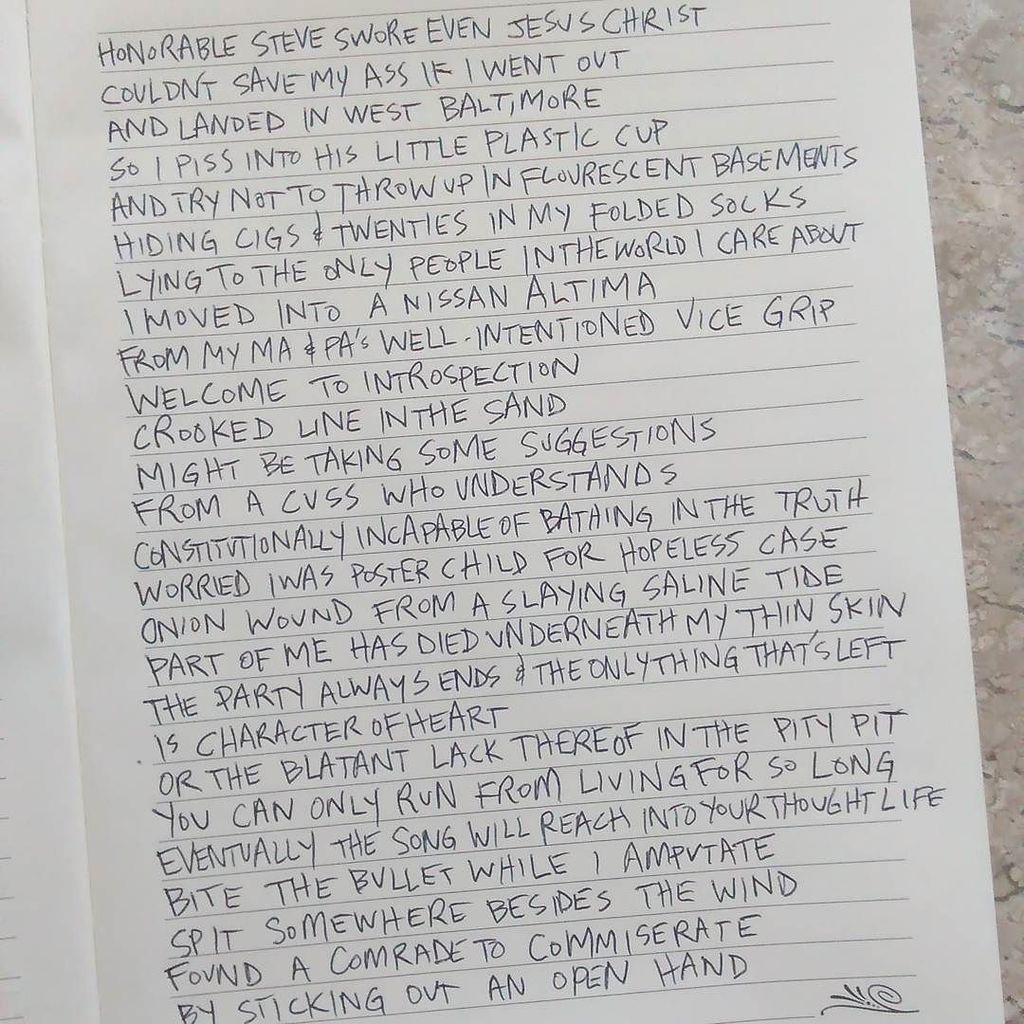 HONORABLE STEVE SWORE EVEN JESUS CHRIST
COULDNT SAVE MY ASS IF I WENT OUT
AND LANDED IN WEST BALTIMORE
SO I PISS INTO HIS LITTLE PLASTIC CUP
AND TRY NOT TO THROW UP IN FLOURESCENT BASEMENTS
HIDING CIGS & TWENTIES IN MY FOLDED SOCKS
LYING TO THE ONLY PEOPLE IN THE WORLD I CARE ABOUT
I MOVED INTO A NISSAN ALTIMA
FROM MY MA & PA'S WELL-INTENTIONED VICE GRIP
WELCOME TO INTROSPECTION
CROOKED LINE IN THE SAND
MIGHT BE TAKING SOME SUGGESTIONS
FROM A CUSS WHO UNDERSTANDS
CONSTITUTIONALLY INCAPABLE OF BATHING IN THE TRUTH
WORRIED I WAS POSTER CHILD FOR HOPELESS CASE
ONION WOUND FROM A SLAYING SALINE TIDE
PART OF ME HAS DIED UNDERNEATH MY THIN SKIN
THE PARTY ALWAYS ENDS & THE ONLY THING THAT'S LEFT
IS CHARACTER OF HEART
OR THE BLATANT LACK THEREOF IN THE PITY PIT
YOU CAN ONLY RUN FROM LIVING FOR SO LONG
EVENTUALLY THE SONG WILL REACH INTO YOUR THOUGHT LIFE
BITE THE BULLET WHILE I AMPUTATE
SPIT SOMEWHERE BESIDES THE WIND
FOUND A COMRADE TO COMMISERATE
BY STICKING OUT AN OPEN HAND